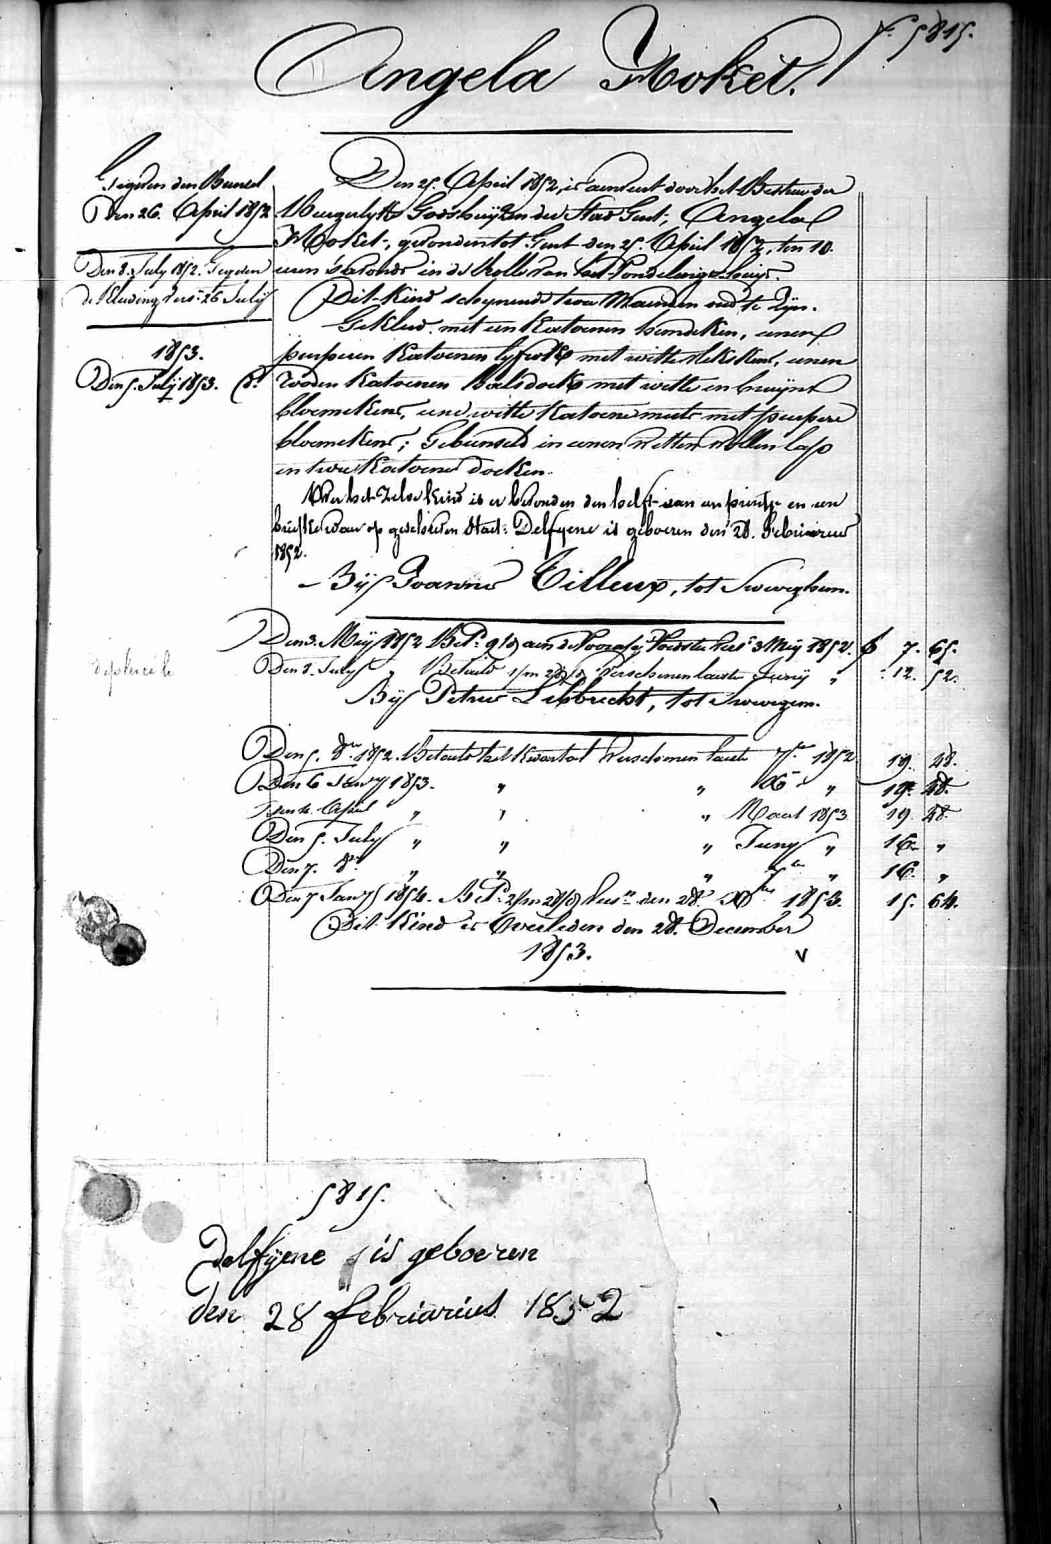 N. 5815.
Angela Moket.
Gegeven den Bunsel
Den 26. April 1852
Den 8. July 1852. Gegeven
de Kleeding vers. 26 July
1853.
Den 5. July 1853. d.
Den 25. April 1852, is aenveert door het Bestuer der
Burgerlyke Godshuyzen der Stad Gent: Angela
Moket, gevonden tot Gent den 25. April 1852, ten 10.
uren 's avonds in de Rolle van het Vondelingenhuys.
Dit Kind schynende twee Maenden oud te zyn.
Gekleed met een Katoenen hemdeken, eenen
purperen Katoenen lyfrok met witte plekskens, eenen
rooden Katoenen halsdoek met witte en bruyne
bloemekens, eene witte Katoene muts met purpere
bloemekens; Gebunseld in eenen witten wollen lap
en twee Katoene doeken.
Over het zelve Kind is er bevonden den helft van een printje en een
briefke waer op geschreven staet: Delfyene is geboeren den 28. Febriarius
1852.
Bij Joanna Tilleux, tot Sweveghem.
Den 3. Meij 1852 Bet. aen de Voorn. Voedster 3 Meij 1852. f 7. 65.
Den 8. July " Betaeld 1/m 28/d Verschenen laeste Junij " 12. 52.
Bij Petrus Libbrecht, tot Swevegem.
Den 5. 8er 1852. Betaelt het Kwartael Verschenen laeste 7er 1852 19. 28.
Den 6 January 1853. " " Xr " 19. 28.
Den 4. April " " " Maart 1853 19. 28.
Den 5. July " " " Juny " 16. "
Den 7. 8r " " " 7er " 16. "
Den 7 January 1854. Bet. 2/m 28/d vers. den 28. Xber 1853. 15. 64.
Dit Kind is Overleden den 28. December
1853.
5815.
Delfyene is geboeren
den 28 febriarius 1852